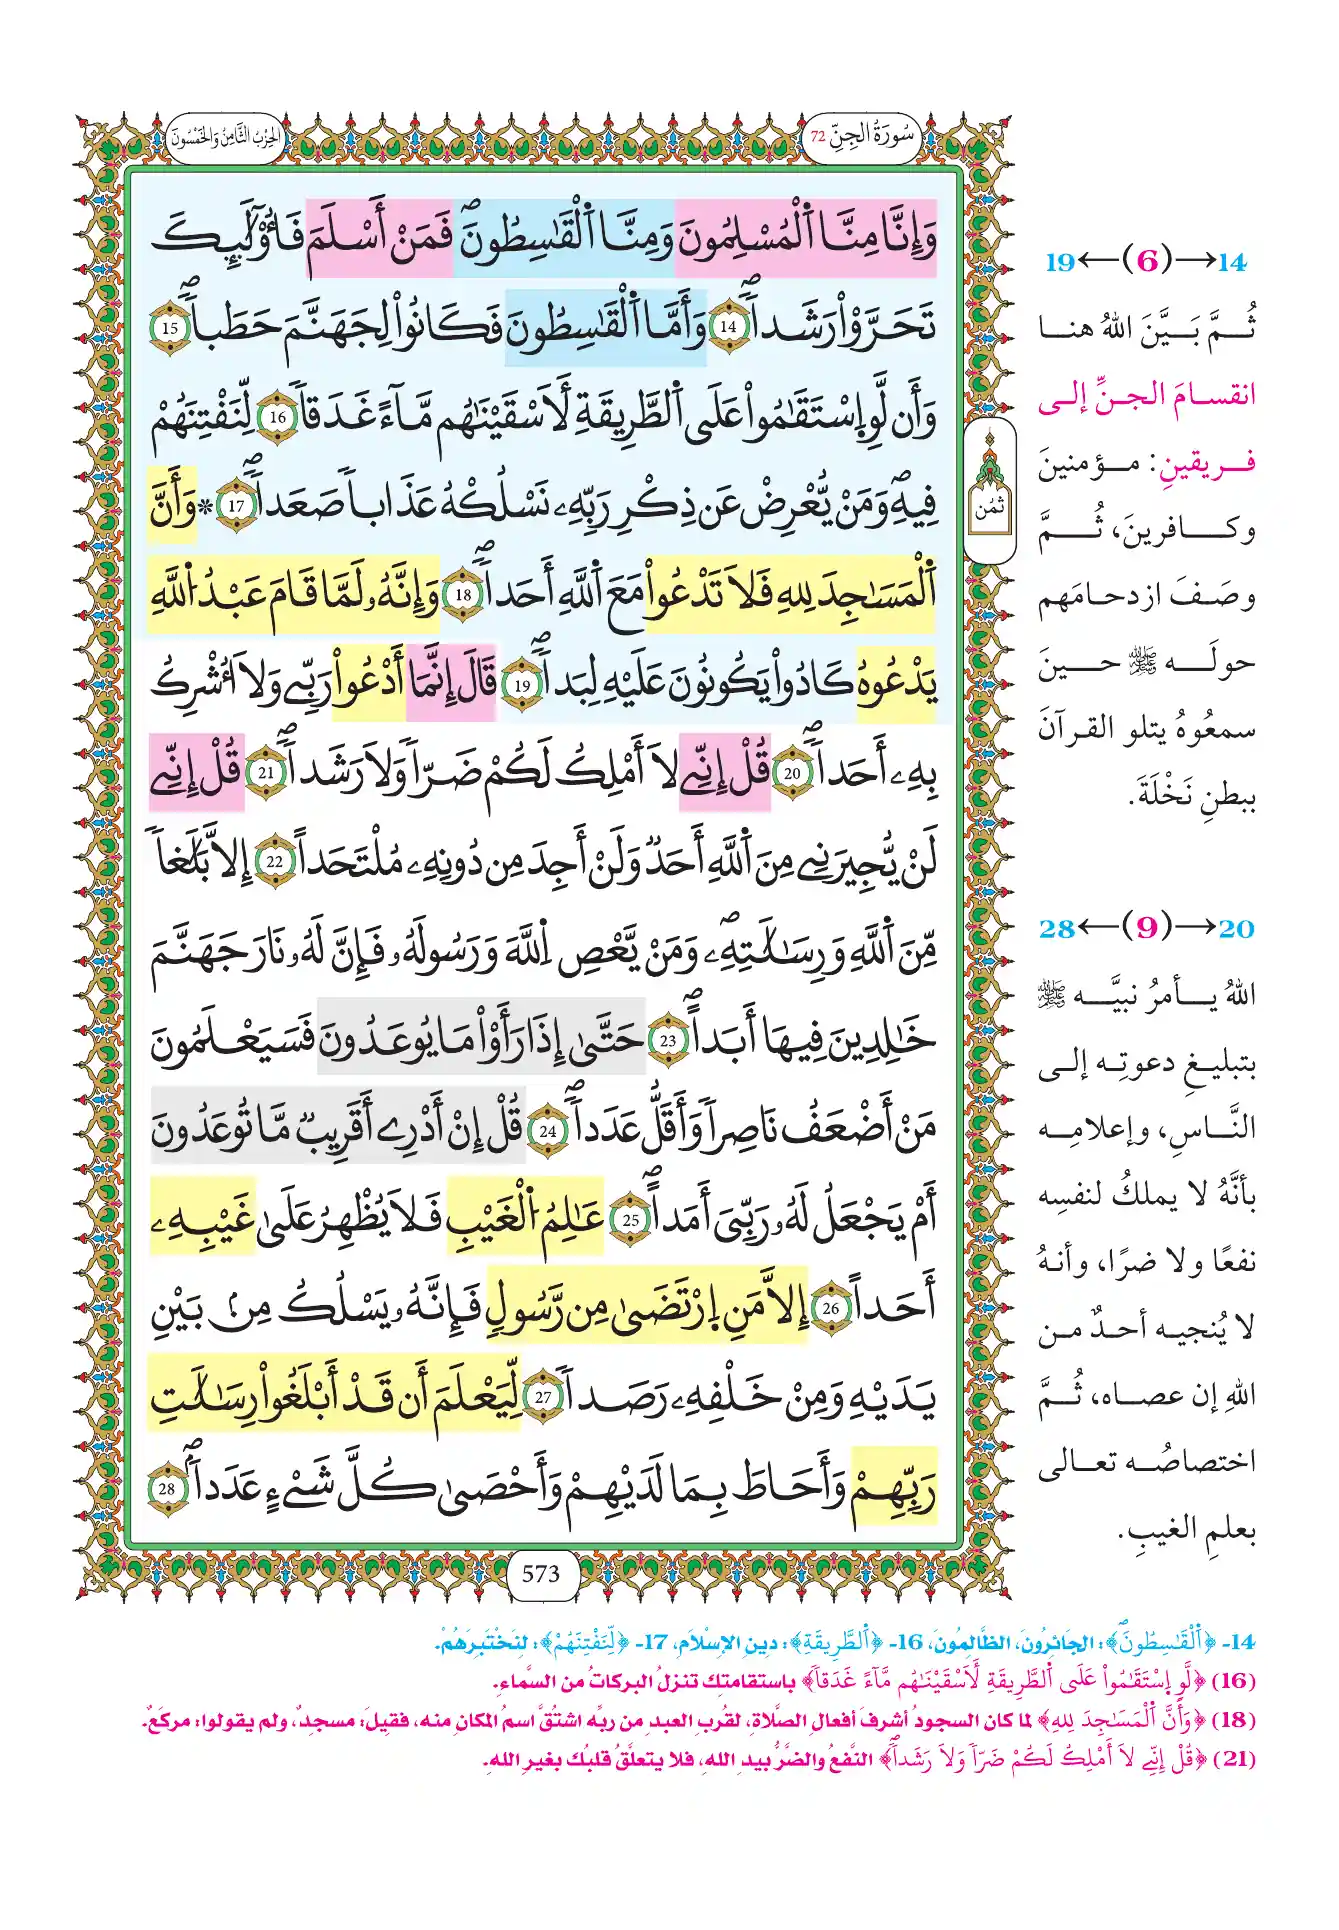 سُورَةُ الجِنِّ 72
الحِزْبُ الثَّامِنُ وَالخَمْسُونَ
وَإِنَّا مِنَّا اَ۬لْمُسْلِمُونَ وَمِنَّا اَ۬لْقَٰسِطُونَۖ فَمَنْ أَسْلَمَ فَأُوْلَٰٓئِكَ
تَحَرَّوْاْ رَشَداٗۖ 14 وَأَمَّا اَ۬لْقَٰسِطُونَ فَكَانُواْ لِجَهَنَّمَ حَطَباٗۖ 15
وَأَن لَّوِ اِ۪سْتَقَٰمُواْ عَلَى اَ۬لطَّرِيقَةِ لَأَسْقَيْنَٰهُم مَّآءً غَدَقاٗ 16 لِّنَفْتِنَهُمْ
فِيهِۖ وَمَنْ يُّعْرِضْ عَن ذِكْرِ رَبِّهِۦ نَسْلُكْهُ عَذَاباٗ صَعَداٗۖ 17 * وَأَنَّ
اَ۬لْمَسَٰجِدَ لِلهِ فَلَا تَدْعُواْ مَعَ اَ۬للَّهِ أَحَداٗۖ 18 وَإِنَّهُۥ لَمَّا قَامَ عَبْدُ اُ۬للَّهِ
يَدْعُوهُ كَادُواْ يَكُونُونَ عَلَيْهِ لِبَداٗۖ 19 قَالَ إِنَّمَا أَدْعُواْ رَبِّے وَلَا أُشْرِكُ
بِهِۦ أَحَداٗۖ 20 قُلْ إِنِّے لَا أَمْلِكُ لَكُمْ ضَرّاٗ وَلَا رَشَداٗۖ 21 قُلْ إِنِّے
لَنْ يُّجِيرَنِے مِنَ اَ۬للَّهِ أَحَدٞ وَلَنْ أَجِدَ مِن دُونِهِۦ مُلْتَحَداً 22 إِلَّا بَلَٰغاٗ
مِّنَ اَ۬للَّهِ وَرِسَٰلَٰتِهِۦۖ وَمَنْ يَّعْصِ اِ۬للَّهَ وَرَسُولَهُۥ فَإِنَّ لَهُۥ نَارَ جَهَنَّمَ
خَٰلِدِينَ فِيهَا أَبَداًۖ 23 حَتَّىٰ إِذَا رَأَوْاْ مَا يُوعَدُونَ فَسَيَعْلَمُونَ
مَنْ أَضْعَفُ نَاصِراٗ وَأَقَلُّ عَدَداٗۖ 24 قُلْ إِنْ أَدْرِے أَقَرِيبٞ مَّا تُوعَدُونَ
أَمْ يَجْعَلُ لَهُۥ رَبِّيَ أَمَداًۖ 25 عَٰلِمُ اُ۬لْغَيْبِ فَلَا يُظْهِرُ عَلَىٰ غَيْبِهِۦ
أَحَداً 26 إِلَّا مَنِ اِ۪رْتَضَىٰ مِن رَّسُولٖ فَإِنَّهُۥ يَسْلُكُ مِنۢ بَيْنِ
يَدَيْهِ وَمِنْ خَلْفِهِۦ رَصَداٗ 27 لِّيَعْلَمَ أَن قَدْ أَبْلَغُواْ رِسَٰلَٰتِ
رَبِّهِمْ وَأَحَاطَ بِمَا لَدَيْهِمْ وَأَحْصَىٰ كُلَّ شَےْءٍ عَدَداٗۖ 28
ثمُن
573
14→(6)←19
ثُمَّ بَيَّنَ اللهُ هنا
انقسامَ الجنِّ إلى
فريقينِ: مؤمنينَ
وكافرينَ، ثُمَّ
وصَفَ ازدحامَهم
حولَه ﷺ حينَ
سمعُوهُ يتلو القرآنَ
ببطنِ نَخْلَةَ.
20→(9)←28
اللهُ يأمرُ نبيَّه ﷺ
بتبليغِ دعوتِه إلى
النَّاسِ، وإعلامِه
بأنَّهُ لا يملكُ لنفسِه
نفعًا ولا ضرًا، وأنهُ
لا يُنجيه أحدٌ من
اللهِ إن عصاه، ثُمَّ
اختصاصُه تعالى
بعلمِ الغيبِ.
14- ﴿اَ۬لْقَٰسِطُونَۖ﴾: الجَائِرُونَ، الظَّالِمُونَ، 16- ﴿اَ۬لطَّرِيقَةِ﴾: دِينِ الإِسْلَامِ، 17- ﴿لِّنَفْتِنَهُمْ﴾: لِنَخْتَبِرَهُمْ.
(16) ﴿لَّوِ اِ۪سْتَقَٰمُواْ عَلَى اَ۬لطَّرِيقَةِ لَأَسْقَيْنَٰهُم مَّآءً غَدَقاٗ﴾ باستقامتِك تنزلُ البركاتُ من السَّماءِ.
(18) ﴿وَأَنَّ اَ۬لْمَسَٰجِدَ لِلهِ﴾ لما كان السجودُ أشرفَ أفعالِ الصَّلاةِ، لقُربِ العبدِ من ربِّه اشتُقَّ اسمُ المكانِ منه، فقيلَ: مسجدٌ، ولم يقولوا: مركعٌ.
(21) ﴿قُلْ إِنِّے لَا أَمْلِكُ لَكُمْ ضَرّاٗ وَلَا رَشَداٗۖ﴾ النَّفعُ والضَّرُّ بيدِ اللهِ، فلا يتعلَّقُ قلبُك بغيرِ اللهِ.